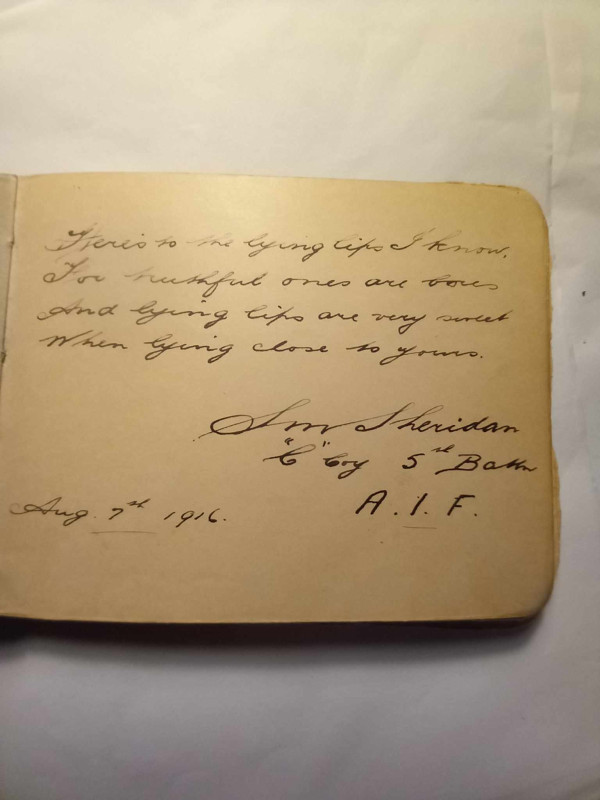 Here's to the lying lips I know,
For truthful ones are bores
And lying lips are very sweet
When lying close to yours.
Sm Sheridan
"C" Coy 5th Battn
Aug. 7th 1916. A.I.F.